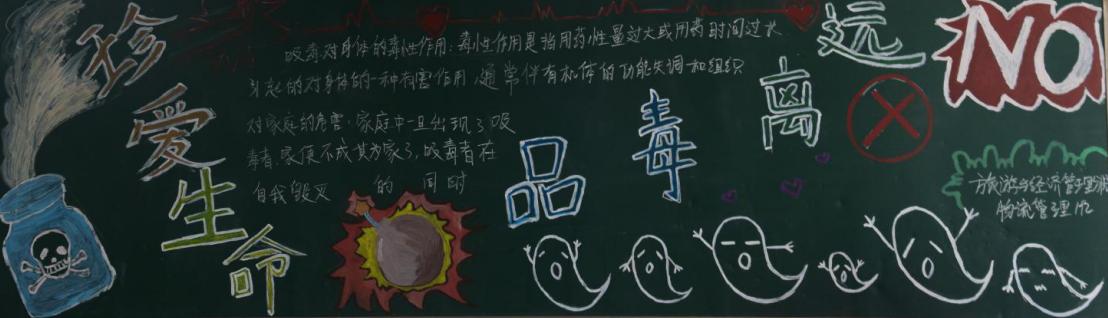 珍爱生命
远离毒品
NO
吸毒对身体的毒性作用:毒性作用是指用药性量过大或用药时间过长
引起的对身体的一种有害作用,通常伴有机体的功能失调和组织
对家庭的危害:家庭中一旦出现了吸
毒者,家便不成其为家了,吸毒者在
自我毁灭的同时
旅游与经济管理
物流管理